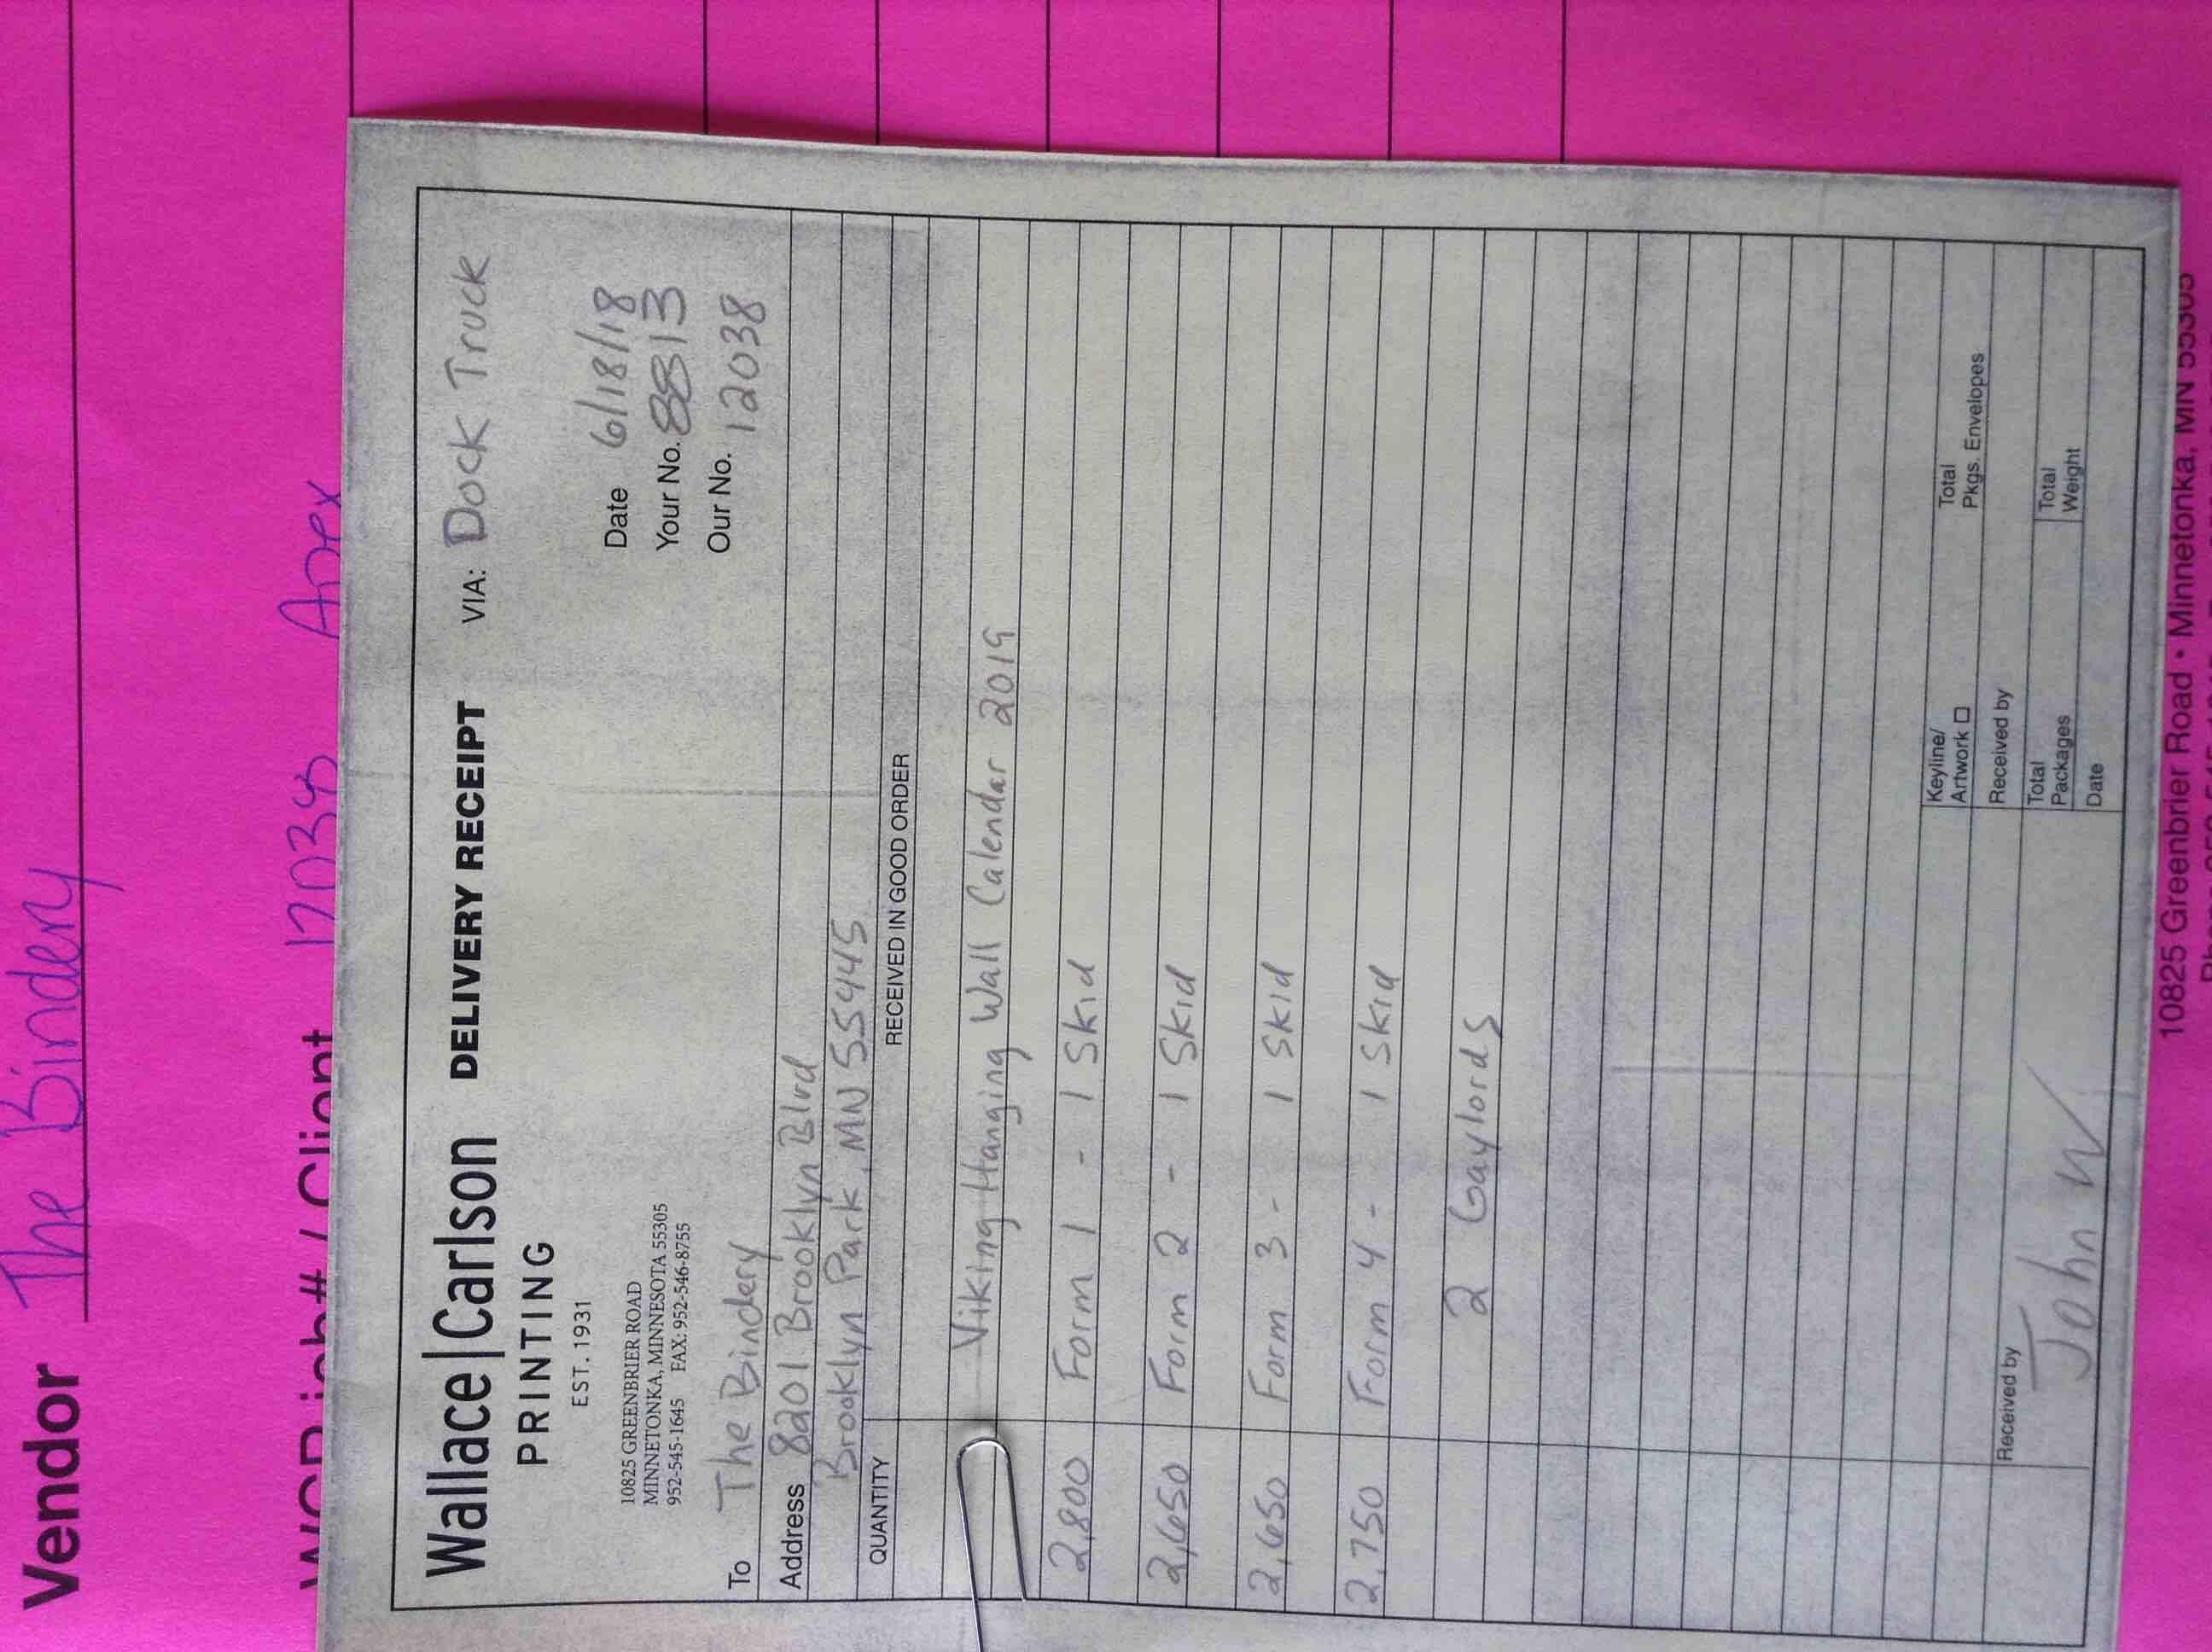 Vendor The Bindery
WCP job# / Client 12038 Apex
Wallace|Carlson DELIVERY RECEIPT VIA: Dock Truck
PRINTING
EST. 1931
10825 GREENBRIER ROAD
MINNETONKA, MINNESOTA 55305
952-545-1645 FAX: 952-546-8755
Date 6/18/18
Your No. 8813
Our No. 12038
To The Bindery
Address 8201 Brooklyn Blvd
Brooklyn Park, MN 55445
QUANTITY RECEIVED IN GOOD ORDER
Viking Hanging Wall Calendar 2019
2,800 Form 1 - 1 Skid
2,650 Form 2 - 1 Skid
2,650 Form 3 - 1 Skid
2,750 Form 4 - 1 Skid
2 Gaylords
Keyline/
Artwork
Total
Pkgs. Envelopes
Received by John W
Received by
Total
Packages
Total
Weight
Date
10825 Greenbrier Road • Minnetonka, MN 55305